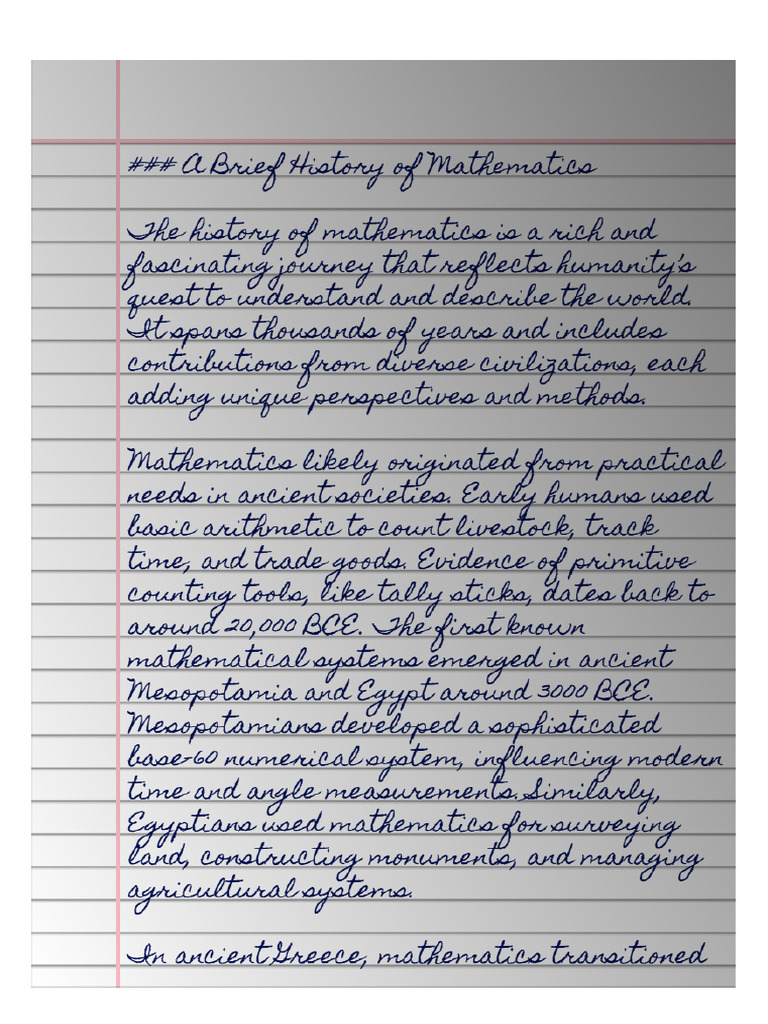 ### A Brief History of Mathematics
The history of mathematics is a rich and
fascinating journey that reflects humanity's
quest to understand and describe the world.
It spans thousands of years and includes
contributions from diverse civilizations, each
adding unique perspectives and methods.
Mathematics likely originated from practical
needs in ancient societies. Early humans used
basic arithmetic to count livestock, track
time, and trade goods. Evidence of primitive
counting tools, like tally sticks, dates back to
around 20,000 BCE. The first known
mathematical systems emerged in ancient
Mesopotamia and Egypt around 3000 BCE.
Mesopotamians developed a sophisticated
base-60 numerical system, influencing modern
time and angle measurements. Similarly,
Egyptians used mathematics for surveying
land, constructing monuments, and managing
agricultural systems.
In ancient Greece, mathematics transitioned